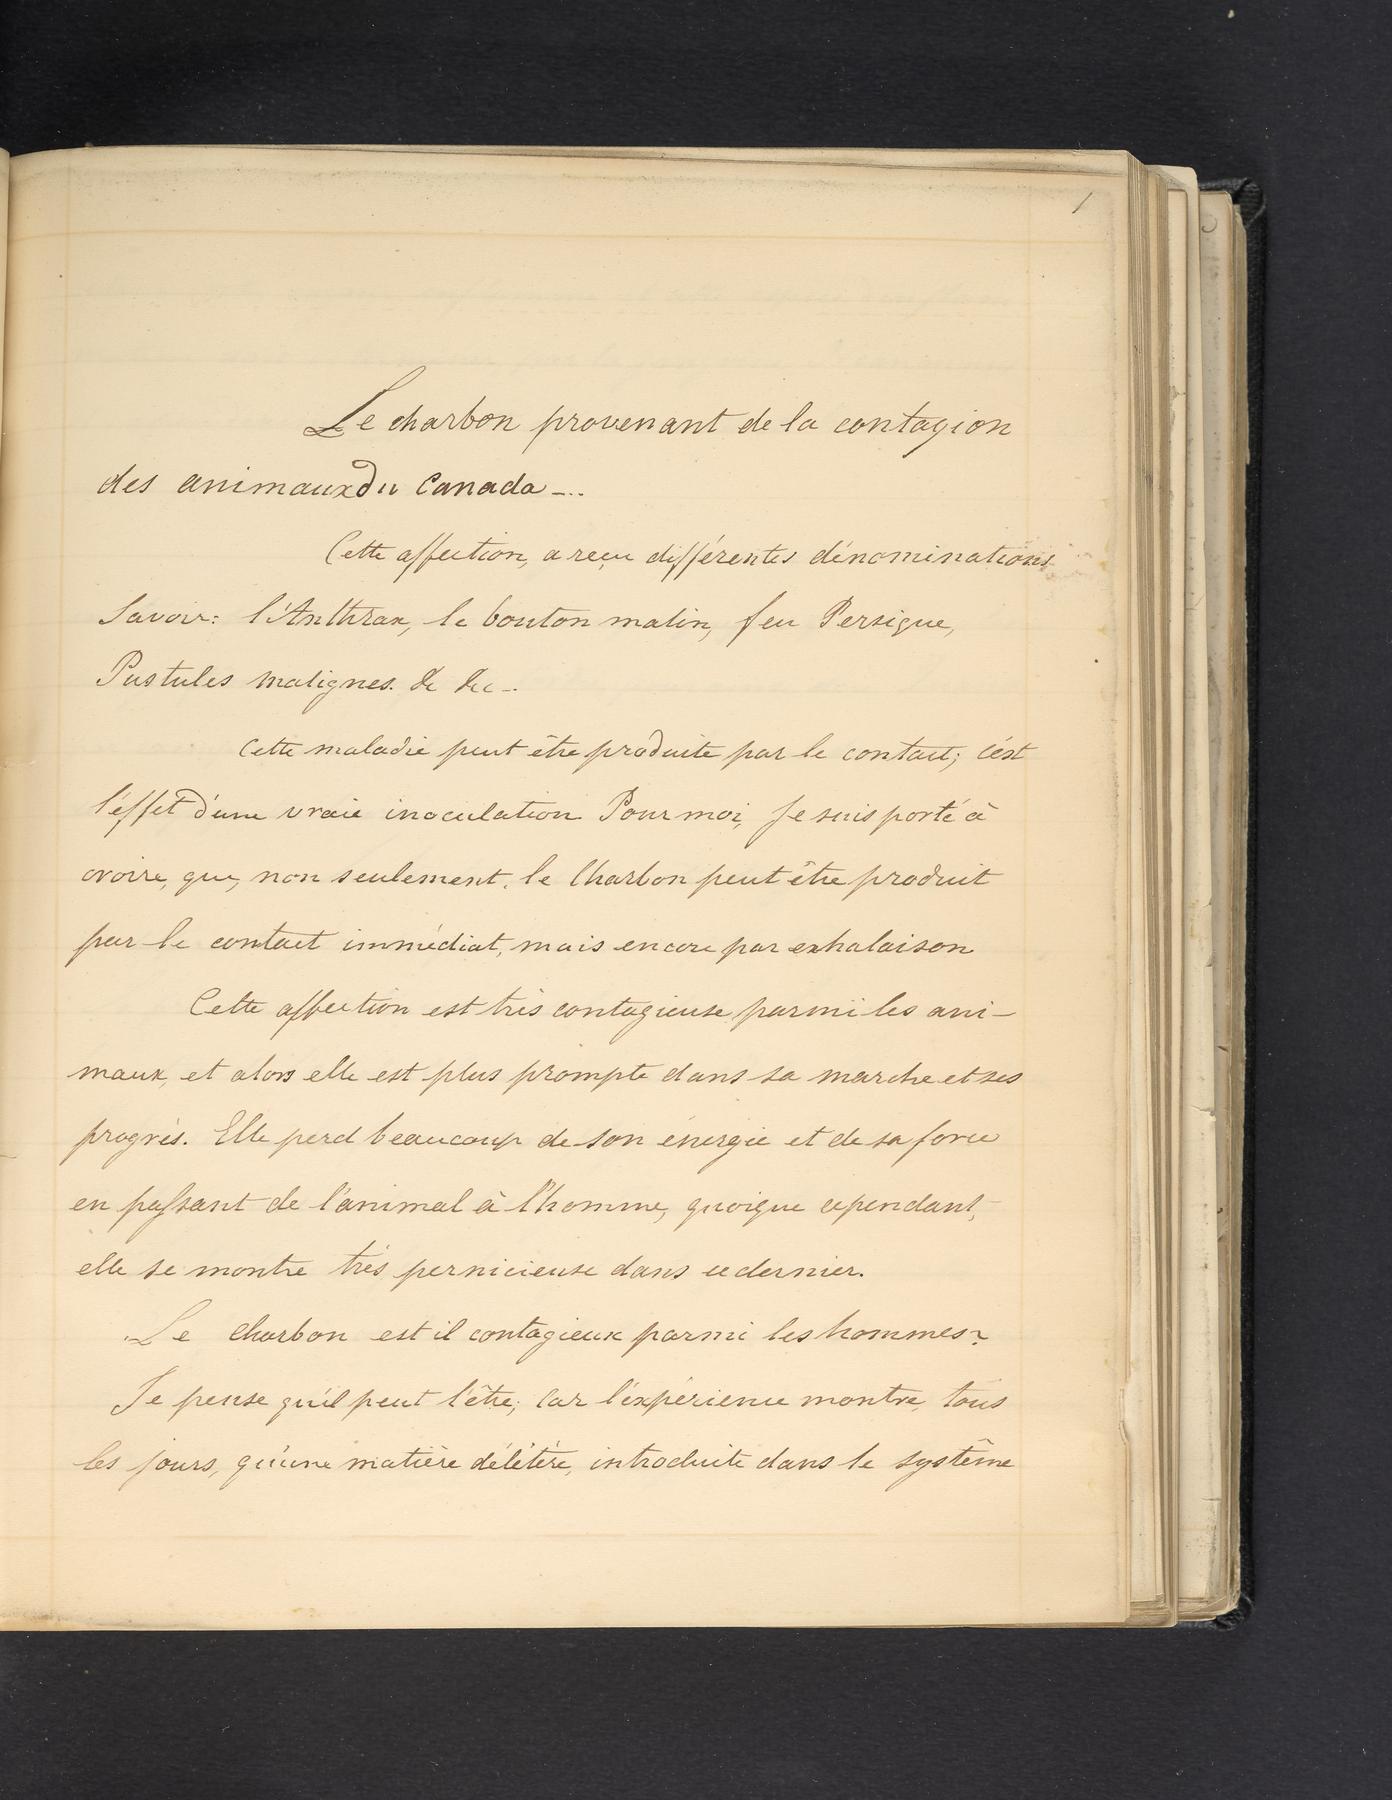 1
Le charbon provenant de la contagion
des animaux du Canada -..
Cette affection, a reçu différentes dénominations
Savoir: l'Anthrax, le bouton malin, feu Persique,
Pustules malignes. &c &c -.
Cette maladie peut être produite par le contact; c'est
l'éffet d'une vraie inoculation Pour moi, Je suis porté à
croire, que, non seulement, le Charbon peut être produit
par le contact immédiat, mais encore par exhalaison
Cette affection est très contagieuse parmi les ani-
maux, et alors elle est plus prompte dans sa marche et ses
progrés. Elle perd beaucoup de son énergie et de sa force
en passant de l'animal à l'homme, quoique cependant,
elle se montre très pernicieuse dans ce dernier.
Le charbon est il contagieux parmi les hommes?
Je pense qu'il peut l'être; Car l'éxpérience montre, tous
les jours, qu'une matière délétère, introduite dans le système